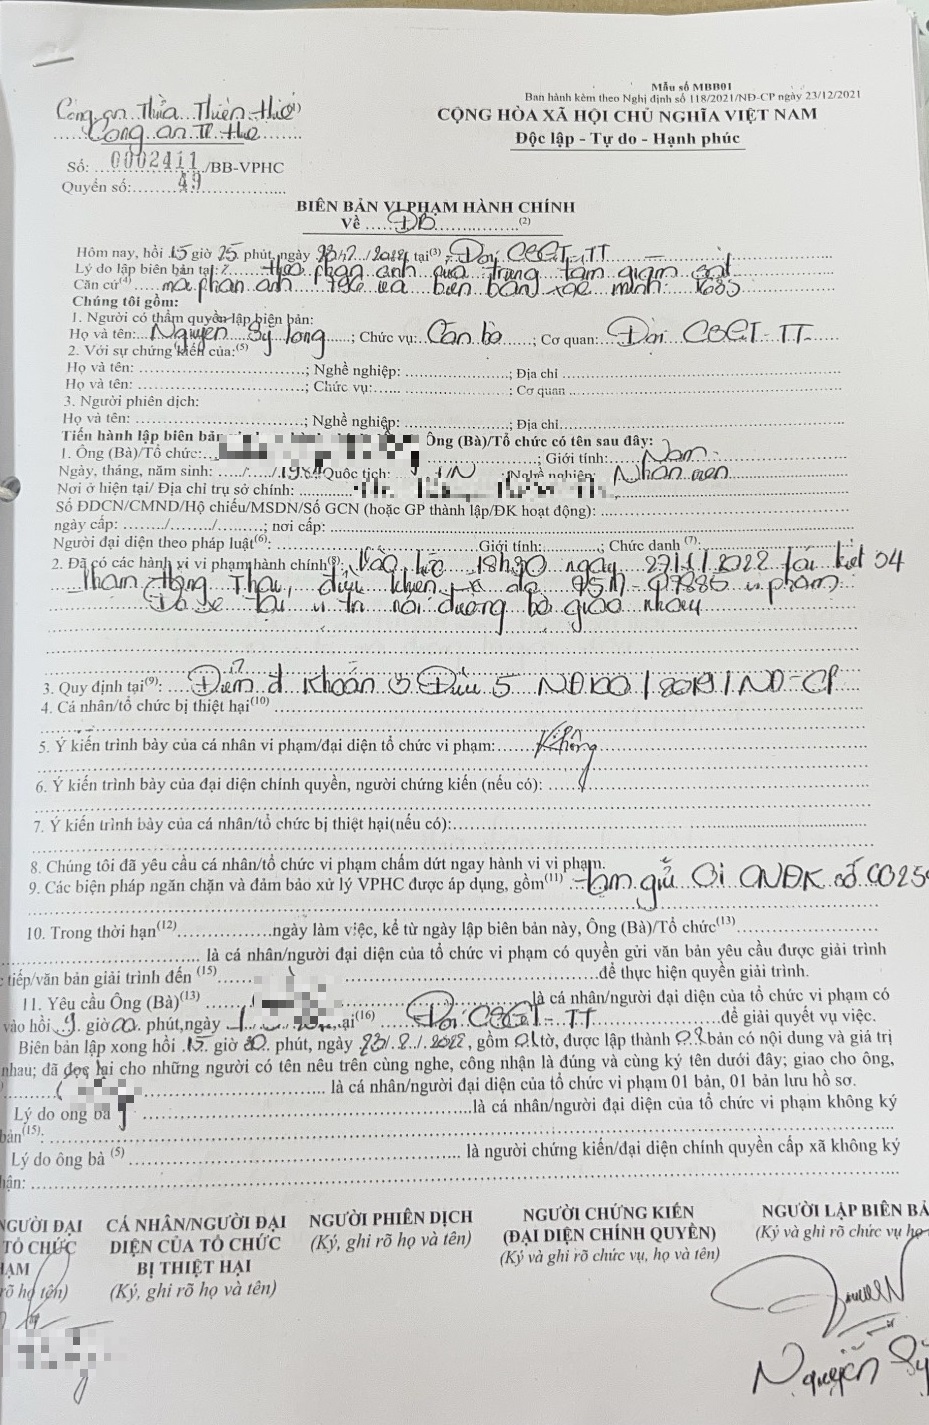 Mẫu số MBB01
Ban hành kèm theo Nghị định số 118/2021/NĐ-CP ngày 23/12/2021
Công an Thừa Thiên Huế (1)
Công an TP Huế
CỘNG HÒA XÃ HỘI CHỦ NGHĨA VIỆT NAM
Độc lập - Tự do - Hạnh phúc
Số: 0002411 /BB-VPHC
Quyển số: 49
BIÊN BẢN VI PHẠM HÀNH CHÍNH
Về ĐB (2)
Hôm nay, hồi 15 giờ 25 phút, ngày 23/2/2022 tại(3) Đội CSGT-TT
Lý do lập biên bản tại: theo phản ánh qua trung tâm giám sát
Căn cứ(4) mã phản ánh và biên bản xác minh
Chúng tôi gồm:
1. Người có thẩm quyền lập biên bản:
Họ và tên: Nguyễn Sỹ Long; Chức vụ: Cán bộ; Cơ quan: Đội CSGT-TT
2. Với sự chứng kiến của:(5)
Họ và tên: ; Nghề nghiệp: ; Địa chỉ
Họ và tên: ; Chức vụ: ; Cơ quan
3. Người phiên dịch:
Họ và tên: ; Nghề nghiệp: ; Địa chỉ
Tiến hành lập biên bản Ông (Bà)/Tổ chức có tên sau đây:
1. Ông (Bà)/Tổ chức: ; Giới tính: Nam
Ngày, tháng, năm sinh: / / Quốc tịch: VN ;Nghề nghiệp: Nhân viên
Nơi ở hiện tại/ Địa chỉ trụ sở chính:
Số ĐDCN/CMND/Hộ chiếu/MSDN/Số GCN (hoặc GP thành lập/ĐK hoạt động):
ngày cấp: / / ; nơi cấp:
Người đại diện theo pháp luật(6): Giới tính: ; Chức danh (7):
2. Đã có các hành vi vi phạm hành chính(8): Vào lúc 18h30 ngày 27/1/2022 tại kiệt 04
Thân Trọng điều khiển xe ô tô 75A- vi phạm
Đỗ xe tại vị trí nơi đường bộ giao nhau
3. Quy định tại(9): Điểm d Khoản 3 Điều 5 NĐ 100/2019/NĐ-CP
4. Cá nhân/tổ chức bị thiệt hại(10)
5. Ý kiến trình bày của cá nhân vi phạm/đại diện tổ chức vi phạm: Không
6. Ý kiến trình bày của đại diện chính quyền, người chứng kiến (nếu có):
7. Ý kiến trình bày của cá nhân/tổ chức bị thiệt hại(nếu có):
8. Chúng tôi đã yêu cầu cá nhân/tổ chức vi phạm chấm dứt ngay hành vi vi phạm.
9. Các biện pháp ngăn chặn và đảm bảo xử lý VPHC được áp dụng, gồm(11) tạm giữ 01 GNĐK số
10. Trong thời hạn(12) ngày làm việc, kể từ ngày lập biên bản này, Ông (Bà)/Tổ chức(13)
là cá nhân/người đại diện của tổ chức vi phạm có quyền gửi văn bản yêu cầu được giải trình
tiếp/văn bản giải trình đến (15) để thực hiện quyền giải trình.
11. Yêu cầu Ông (Bà)(13) là cá nhân/người đại diện của tổ chức vi phạm có
vào hồi 9 giờ 00 phút, ngày tại(16) Đội CSGT-TT để giải quyết vụ việc.
Biên bản lập xong hồi 15 giờ 30 phút, ngày 23/2/2022, gồm 01 tờ, được lập thành 02 bản có nội dung và giá trị
nhau; đã đọc lại cho những người có tên nêu trên cùng nghe, công nhận là đúng và cùng ký tên dưới đây; giao cho ông,
là cá nhân/người đại diện của tổ chức vi phạm 01 bản, 01 bản lưu hồ sơ.
Lý do ông bà là cá nhân/người đại diện của tổ chức vi phạm không ký
bản(15):
Lý do ông bà (5) là người chứng kiến/đại diện chính quyền cấp xã không ký
nhận:
NGƯỜI ĐẠI
TỔ CHỨC
HẠM
rõ họ tên)
CÁ NHÂN/NGƯỜI ĐẠI
DIỆN CỦA TỔ CHỨC
BỊ THIỆT HẠI
(Ký, ghi rõ họ và tên)
NGƯỜI PHIÊN DỊCH
(Ký, ghi rõ họ và tên)
NGƯỜI CHỨNG KIẾN
(ĐẠI DIỆN CHÍNH QUYỀN)
(Ký và ghi rõ chức vụ, họ và tên)
NGƯỜI LẬP BIÊN BẢ
(Ký và ghi rõ chức vụ họ
Nguyễn Sỹ